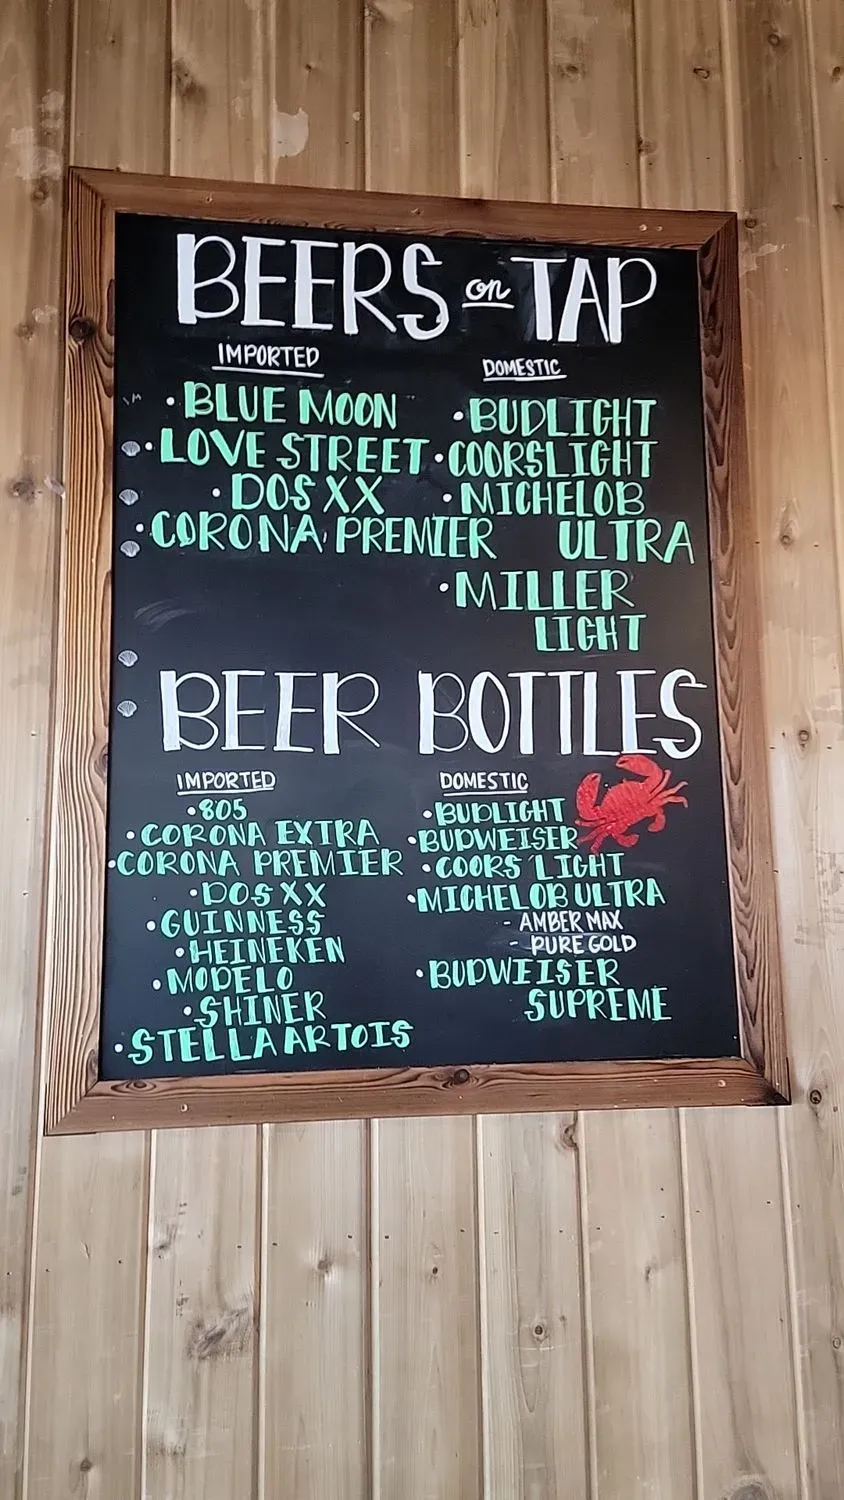 BEERS on TAP
IMPORTED
• BLUE MOON
• LOVE STREET
• DOS XX
• CORONA PREMIER
DOMESTIC
• BUDLIGHT
• COORSLIGHT
• MICHELOB
ULTRA
• MILLER
LIGHT
BEER BOTTLES
IMPORTED
• 805
• CORONA EXTRA
• CORONA PREMIER
• DOS XX
• GUINNESS
• HEINEKEN
• MODELO
• SHINER
• STELLA ARTOIS
DOMESTIC
• BUDLIGHT
• BUDWEISER
• COORS LIGHT
• MICHELOB ULTRA
- AMBER MAX
- PURE GOLD
• BUDWEISER
SUPREME